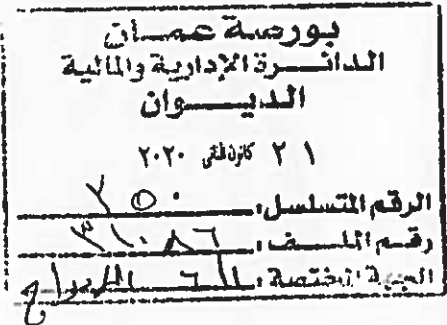 بورصة عمان
الدائرة الإدارية والمالية
الديوان
٢١ كانون الثاني ٢٠٢٠
الرقم المتسلسل:
رقم الملف: ٣١٠٨٦
الجهة المختصة: الإدراج